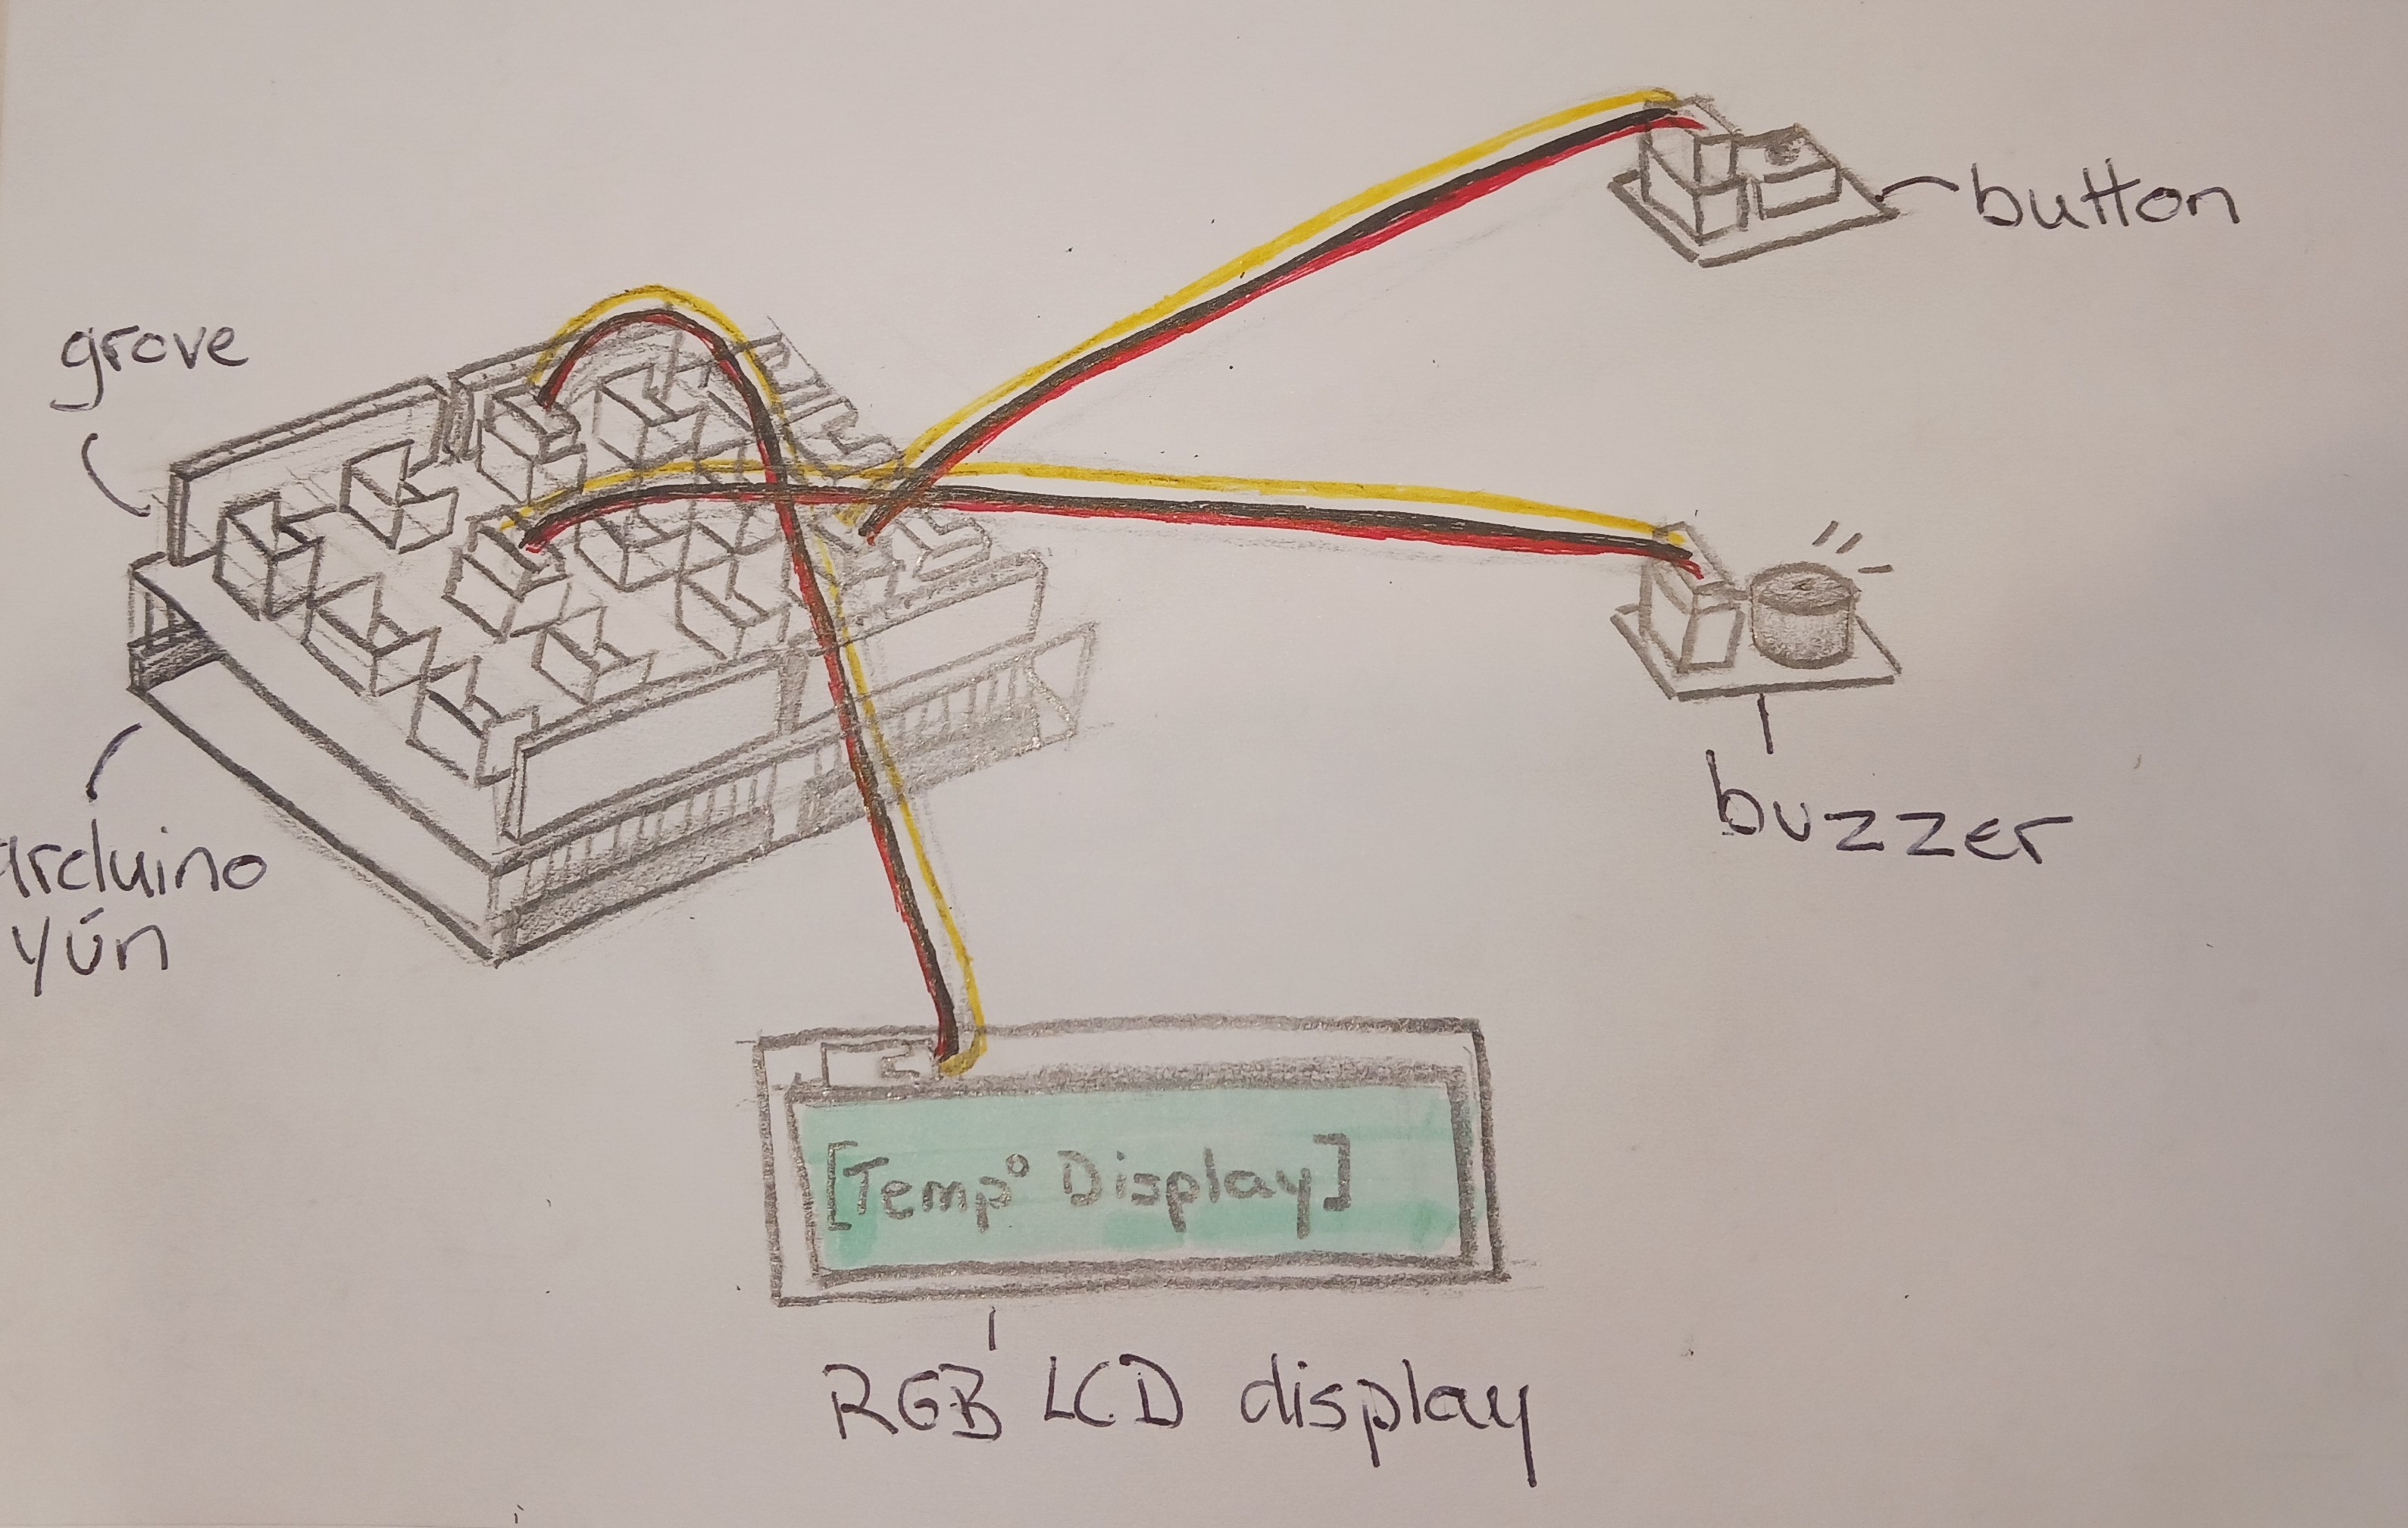 button
grove
buzzer
arduino
yún
[Temp° Display]
RGB LCD display